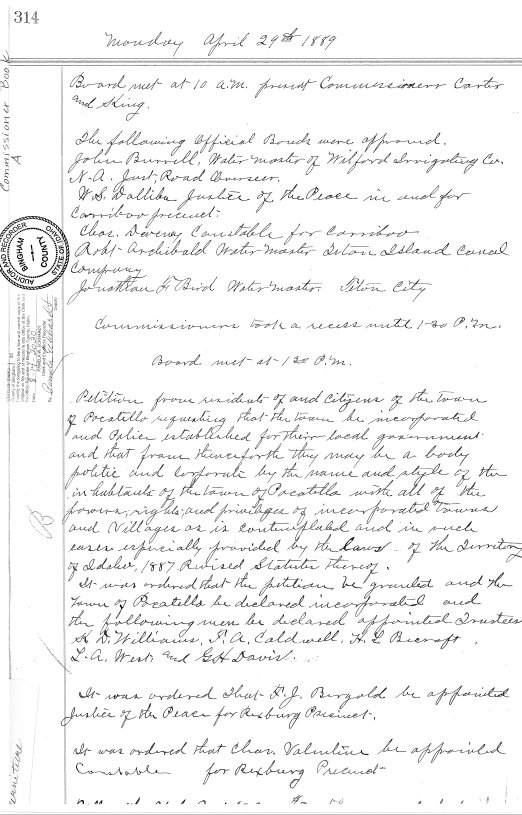 314
Monday April 29th 1889
Commissioner Book
A
Board met at 10 A.M. present Commissioners Carter
and King.
The following Official Bonds were approved.
John Burrell, Water master of Wilford Irrigating Co.
N.A. Just, Road Overseer.
W.S. Dalliba Justice of the Peace in and for
Carriboo precinct.
Chas. Devenny Constable for Carriboo
Robt Archibald Water Master Teton Island Canal
Company
Jonathan F Bird Water master. Teton City
AUDITOR AND RECORDER
BINGHAM
COUNTY
STATE OF IDAHO
Commissioners took a recess until 1-30 P.M.
Board met at 1 30 P.M.
Petition from resident of and Citizens of the town
of Pocatello requesting that the town be incorporated
and Police established for their local government
and that from thenceforth they may be a body
politic and corporate by the name and style of the
inhabitants of the town of Pocatello with all of the
powers, rights, and privileges of incorporated towns
and Villages as is contemplated and in such
cases especially provided by the laws of the Territory
of Idaho, 1887 Revised Statutes thereof.
B
It was ordered that the petition be granted and the
town of Pocatello be declared incorporated and
the following men be declared appointed Trustees
H. D. Williams, F. A. Caldwell, H. L. Becraft,
L. A. West, and G H Davis.
It was ordered That F. J. Bergold be appointed
Justice of the Peace for Rexburg Precinct.
It was ordered that Chas. Valentine be appointed
Constable for Rexburg Precinct